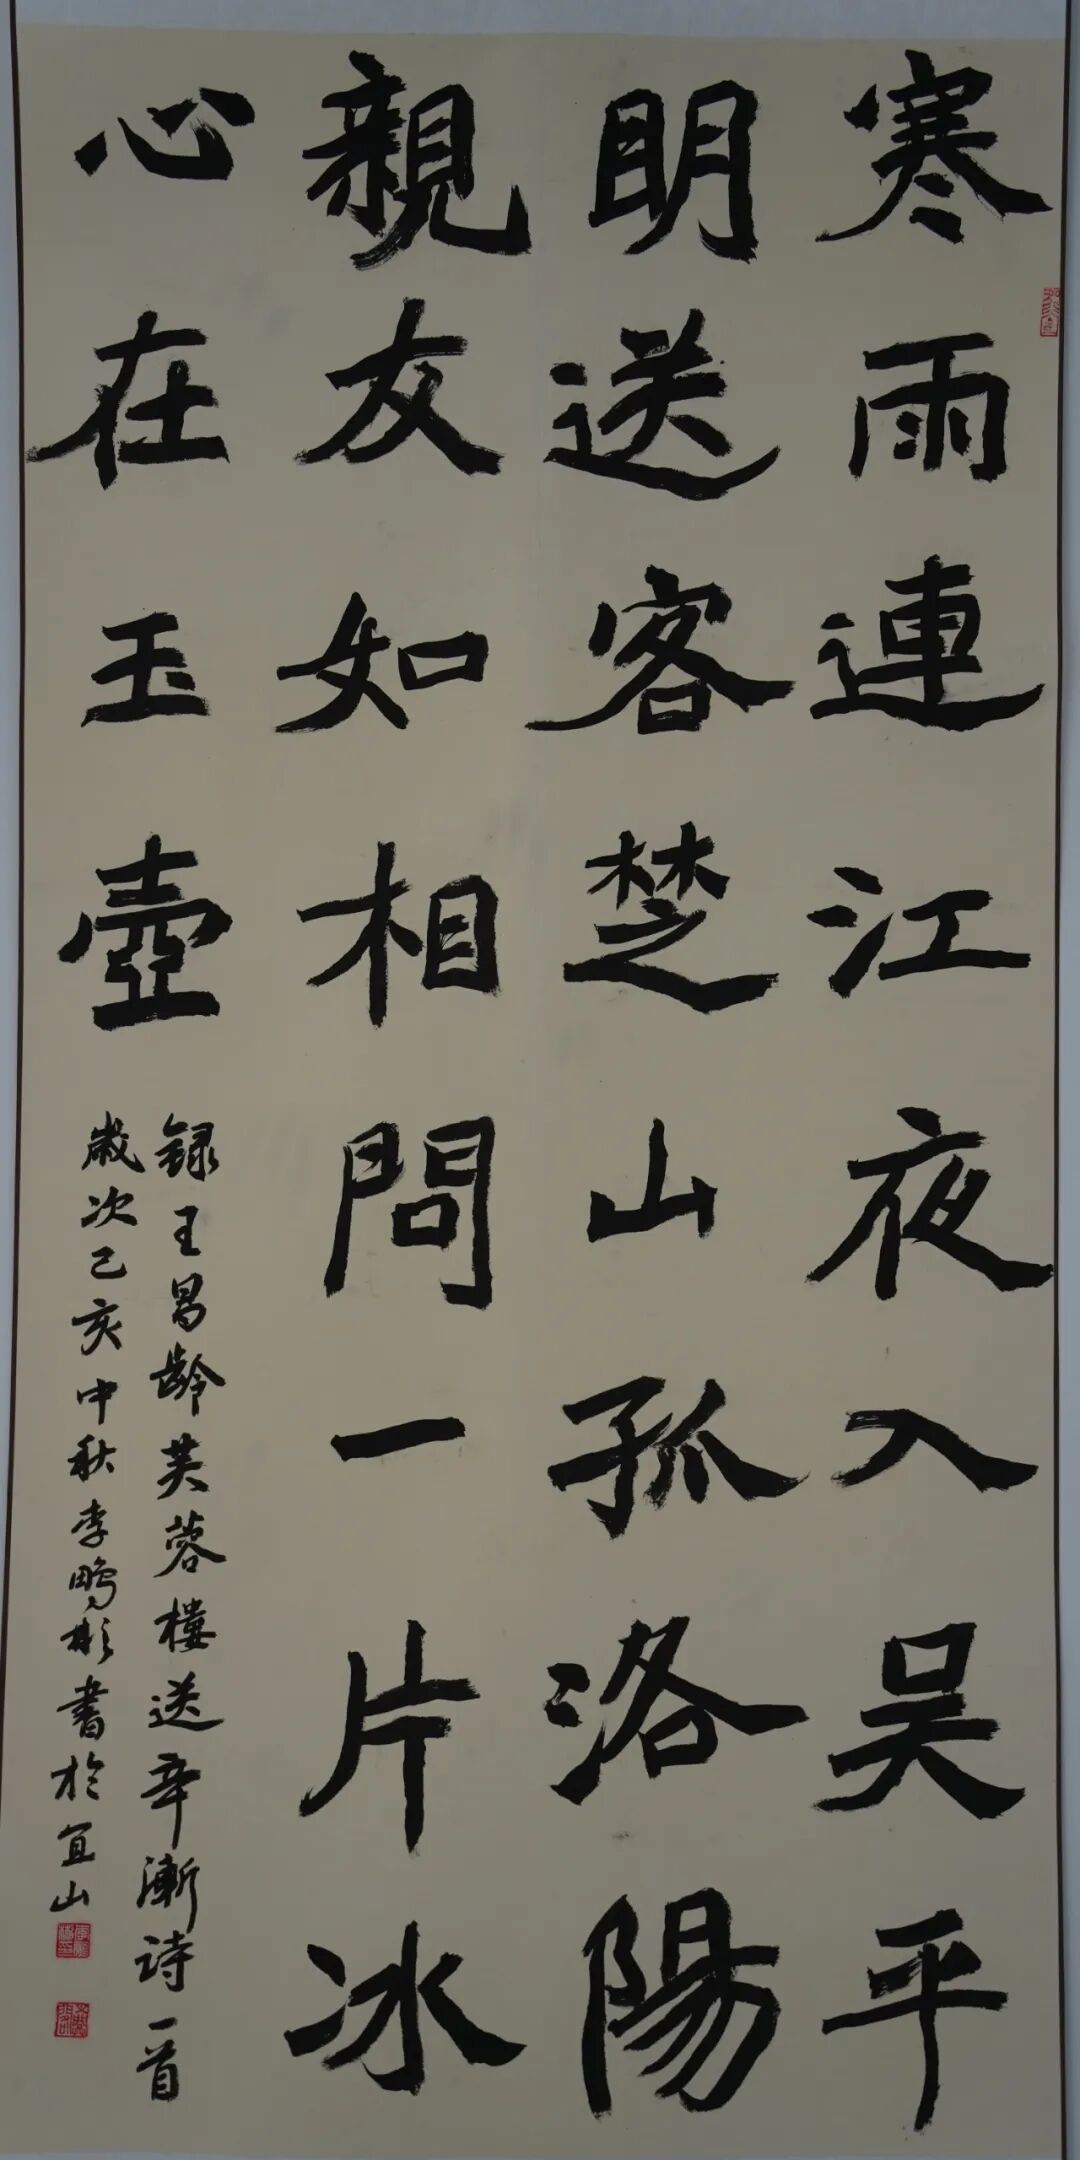 寒雨連江夜入吴平
明送客楚山孤洛陽
親友如相問一片冰
心在玉壺
録王昌齡芙蓉樓送辛漸詩一首
歲次己亥中秋李鵬彬書於宜山